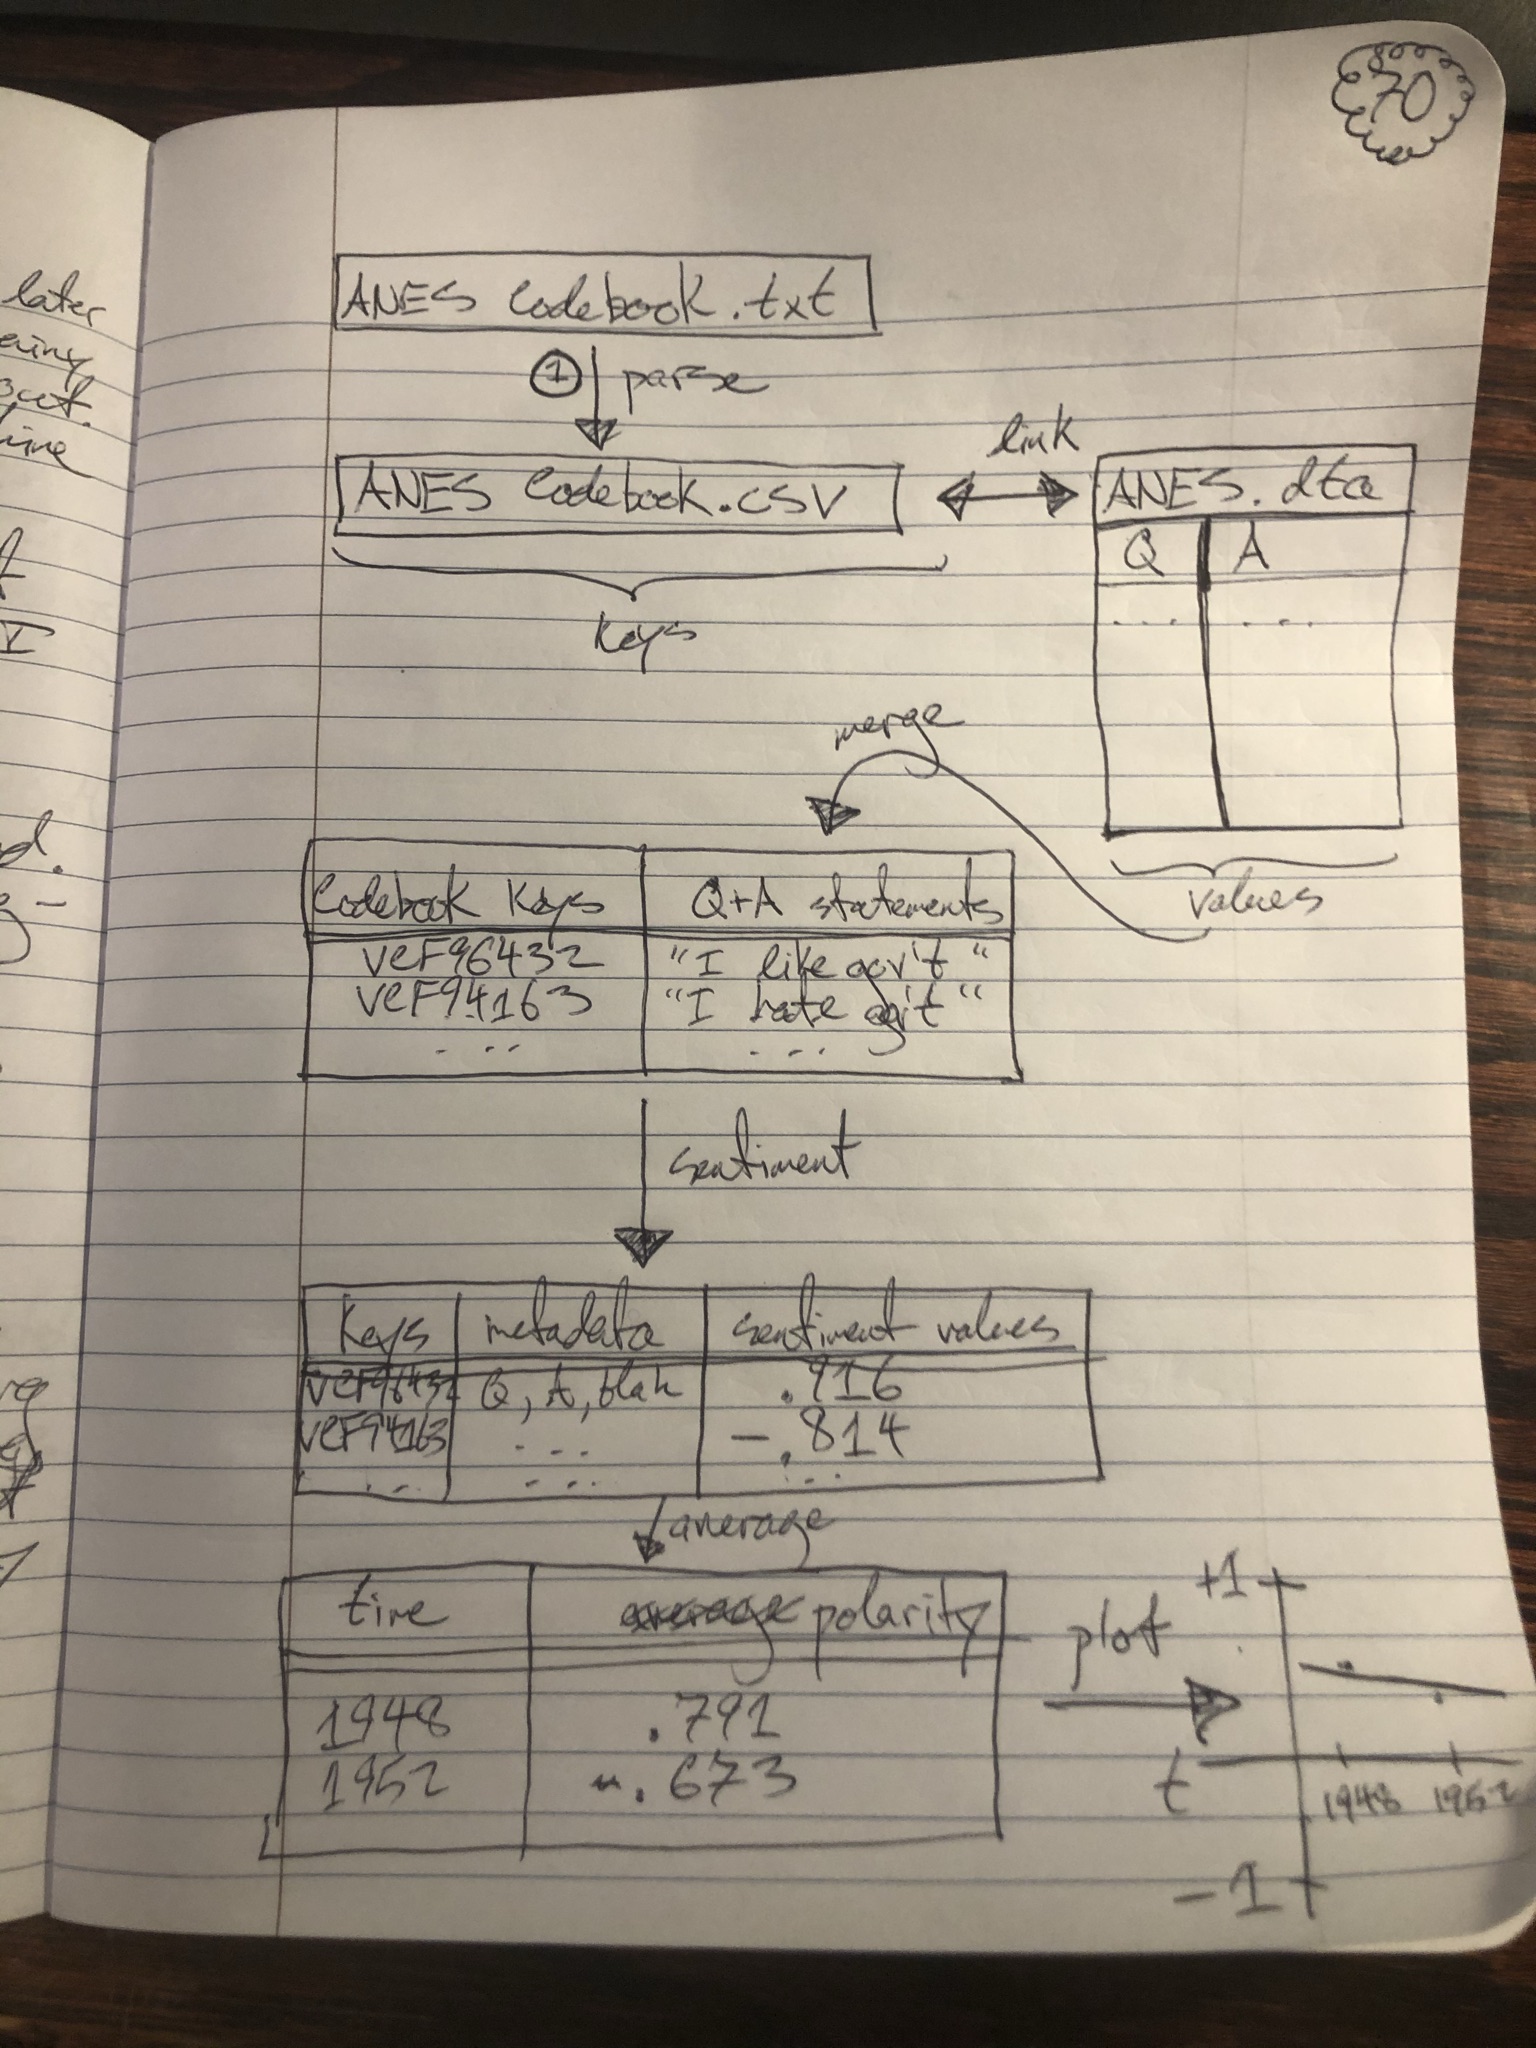 70
later
ANES Codebook.txt
1 parse
link
ANES Codebook.csv
ANES.dta
Q A
... ...
keys
I
merge
values
Codebook Keys Q+A statements
VCF96432 "I like gov't"
VCF94163 "I hate gov't"
... ...
sentiment
keys metadata sentiment values
VCF96432 Q, A, blah .916
VCF94163 ... -.814
... ... ...
average
time polarity
plot
+1
1948 .791
1952 .673
t
1948 1952
-1